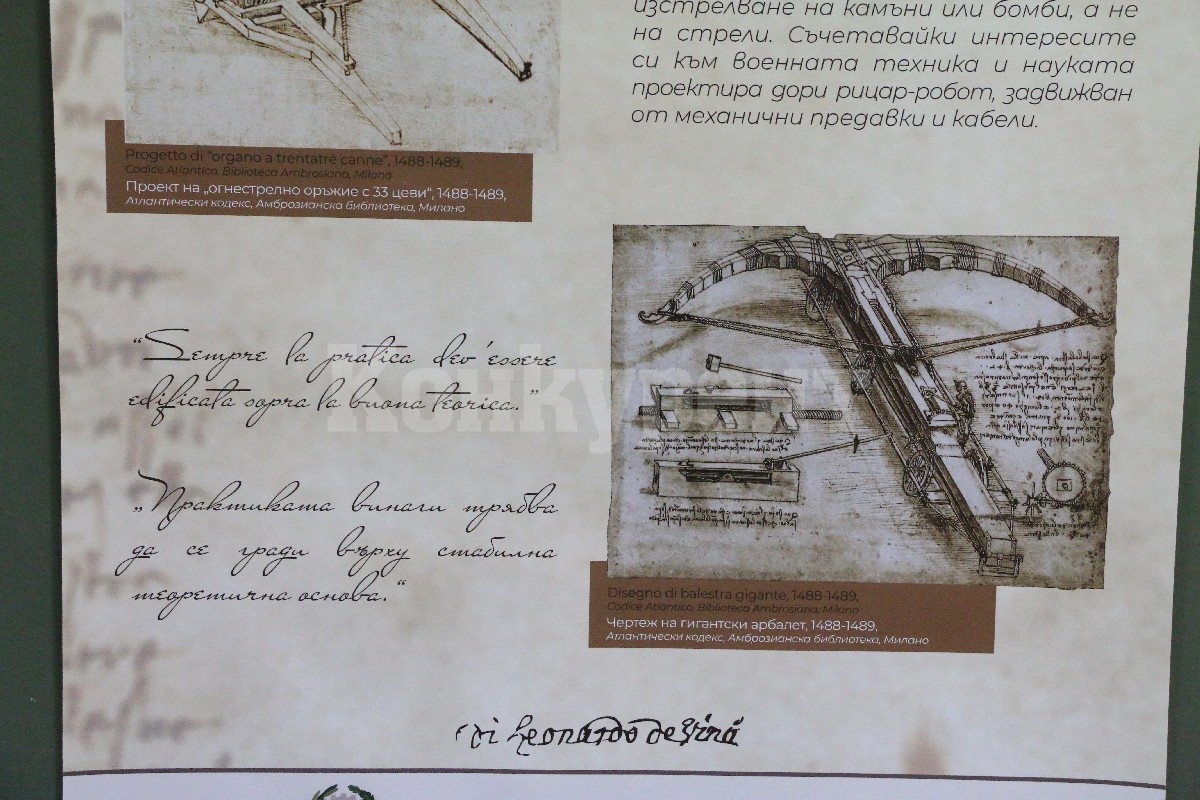 изстрелване на камъни или бомби, а не
на стрели. Съчетавайки интересите
си към военната техника и науката
проектира дори рицар-робот, задвижван
от механични предавки и кабели.
Progetto di "organo a trentatré canne", 1488-1489,
Codice Atlantico, Biblioteca Ambrosiana, Milano
Проект на „огнестрелно оръжие с 33 цеви“, 1488-1489,
Атлантически кодекс, Амброзианска библиотека, Милано
“Sempre la pratica dev'essere
edificata sopra la buona teorica.”
„Практиката винаги трябва
да се гради върху стабилна
теоретична основа.“
Disegno di balestra gigante, 1488-1489,
Codice Atlantico, Biblioteca Ambrosiana, Milano
Чертеж на гигантски арбалет, 1488-1489,
Атлантически кодекс, Амброзианска библиотека, Милано
Leonardo